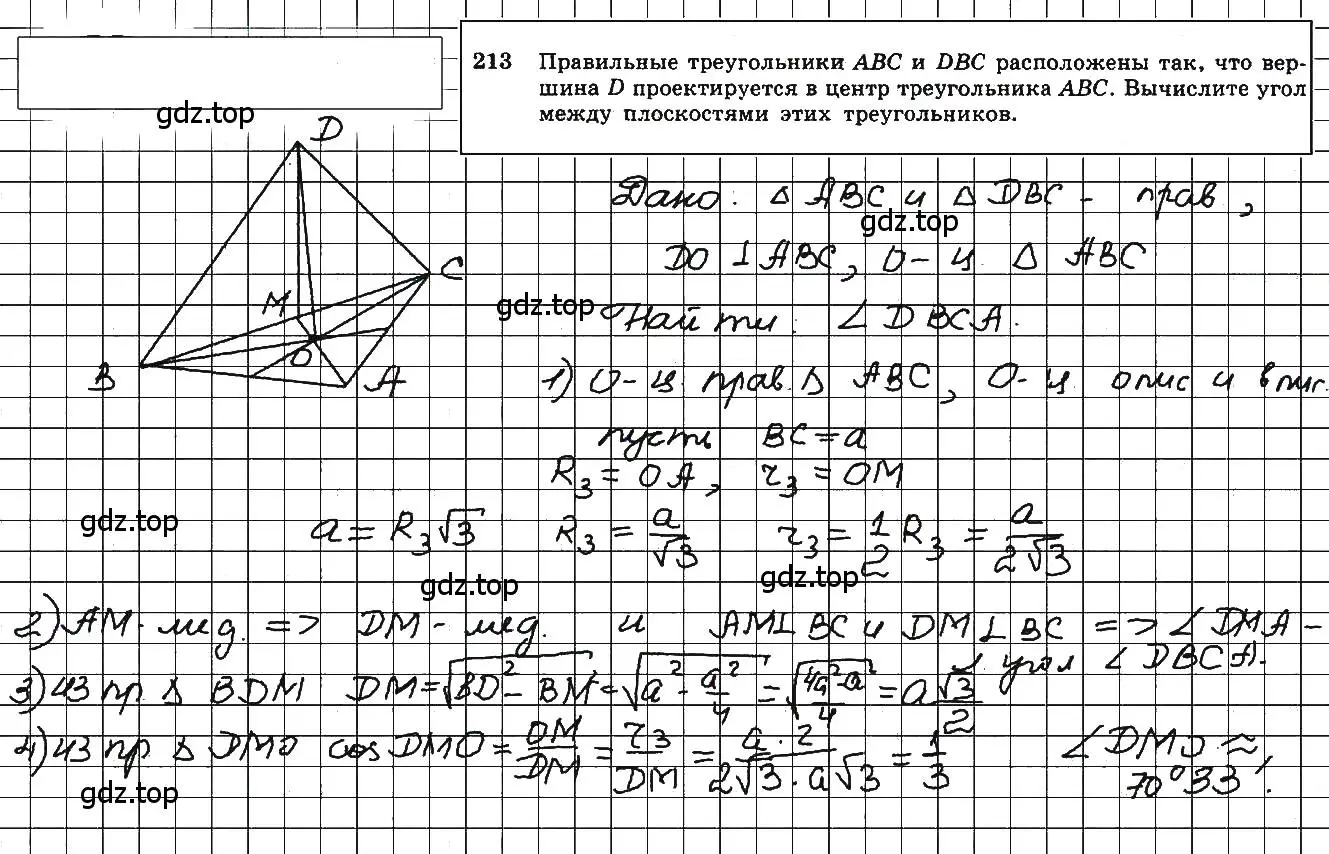 213 Правильные треугольники ABC и DBC расположены так, что вер-
шина D проектируется в центр треугольника ABC. Вычислите угол
между плоскостями этих треугольников.
gdz.top
D
C
M
O
B
A
Дано: △ ABC и △ DBC - прав,
gdz.top
DO ⊥ ABC, O - ц. △ ABC
gdz.top
Найти: ∠ DBCA.
1) O - ц. прав. △ ABC, O - ц опис и впис.
пусть BC = a
R₃ = OA, r₃ = OM
gdz.top
a = R₃√3 R₃ = a/√3 r₃ = 1/2 R₃ = a/2√3
gdz.top gdz.top
2) AM - мед. => DM - мед. и AM ⊥ BC и DM ⊥ BC => ∠ DMA -
угол ∠ DBCA.
3) из пр △ BDM DM = √(BD² - BM) = √(a² - a²/4) = √((4a² - a²)/4) = a√3/2
4) из пр △ DMO cos DMO = OM/DM = r₃/DM = a · 2/2√3 · a√3 = 1/3 ∠ DMO ≈
70°33'.
gdz.top